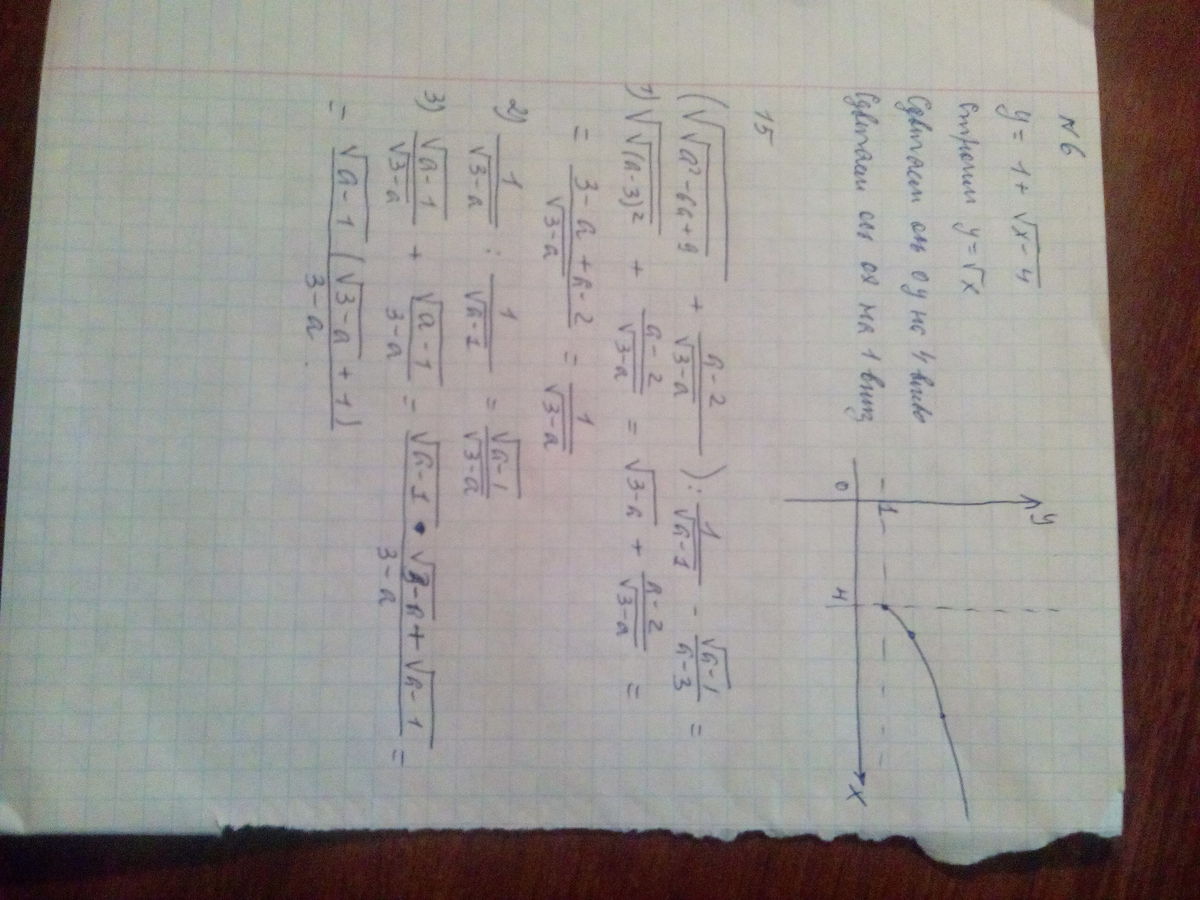 N6
y = 1 + √(x-4)
Строим y = √x
Сдвигаем ось oy на 4 влево
Сдвигаем ось ox на 1 вниз
y
1
0
4
x
15
(√√(a²-6a+9) + (a-2)/√(3-a)) : 1/√(a-1) - √(a-1)/(a-3) =
1) √√(a-3)² + (a-2)/√(3-a) = √(3-a) + (a-2)/√(3-a) =
= (3-a+a-2)/√(3-a) = 1/√(3-a)
2) 1/√(3-a) : 1/√(a-1) = √(a-1)/√(3-a)
3) √(a-1)/√(3-a) + √(a-1)/(3-a) = (√(a-1) · √(3-a) + √(a-1))/(3-a) =
= √(a-1) (√(3-a) + 1)/(3-a).